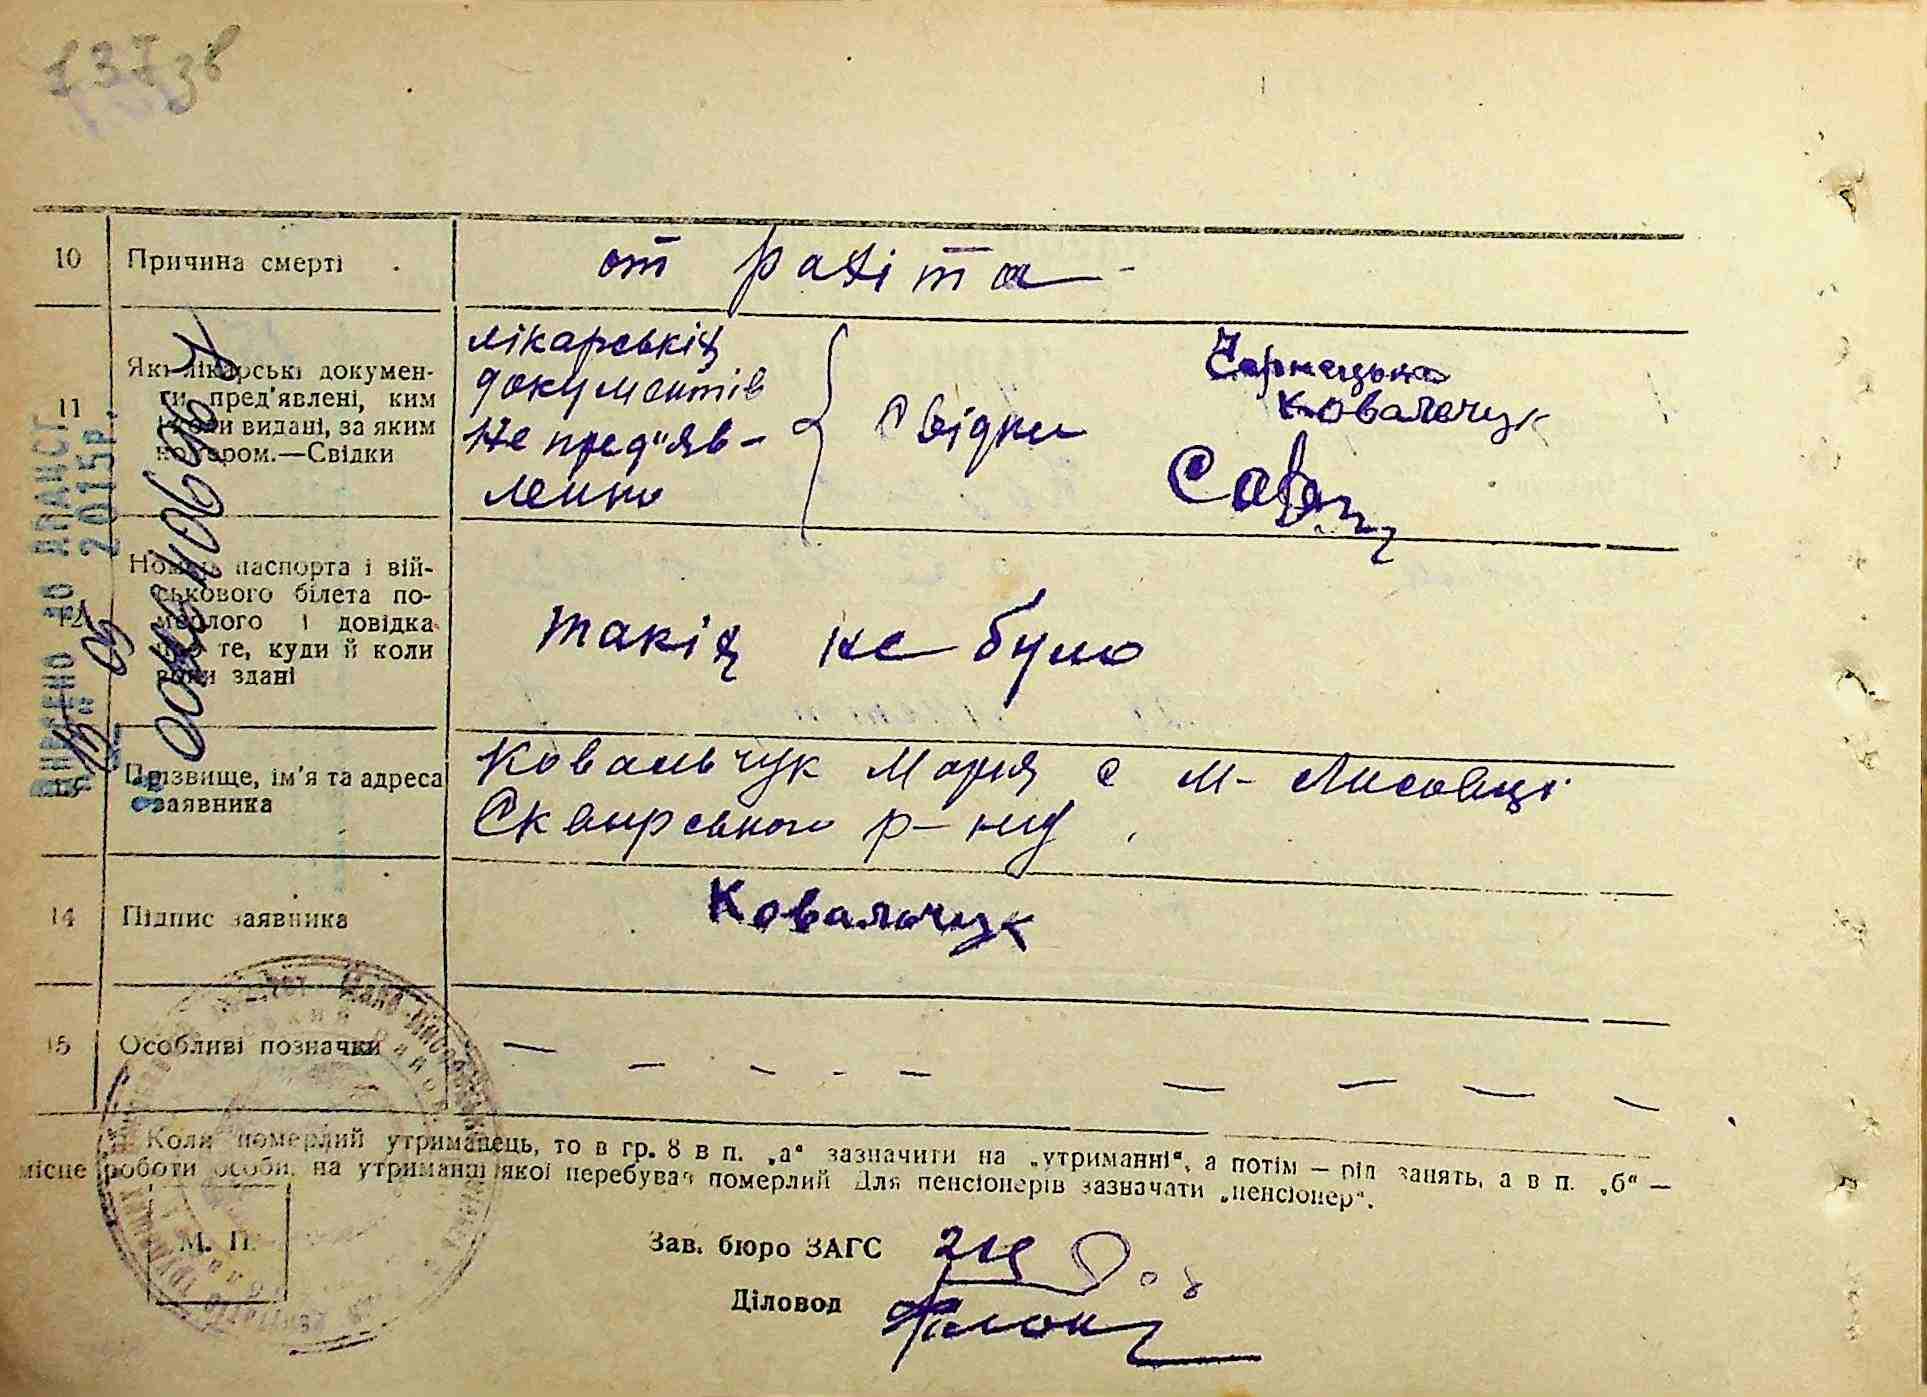 137 зв
10 Причина смерті
от рахіта
11 Які лікарські документи пред'явлені, ким
вони видані, за яким
номером.—Свідки
лікарськіх
документів
не пред"яв-
лено
Свідки
Чернецька
Ковальчук
12 Номер паспорта і вій-
ськового білета по-
мерлого і довідка
про те, куди й коли
вони здані
такіх не було
Прізвище, ім'я та адреса
заявника
Ковальчук Марія с М- Лисовці
Сквирського р-ну
14 Підпис заявника
Ковальчук
15 Особливі позначки
— — — - — — — — —
Коли померлий утриманець, то в гр. 8 в п. „а“ зазначити на „утриманні“, а потім — рід занять, а в п. „б“ —
місце роботи особи, на утриманні якої перебував померлий Для пенсіонерів зазначати „пенсіонер“.
М. П.
Зав. бюро ЗАГС
Діловод
ВНЕСЕНО до ДРАЦСГ
„15“ 05 2015р.